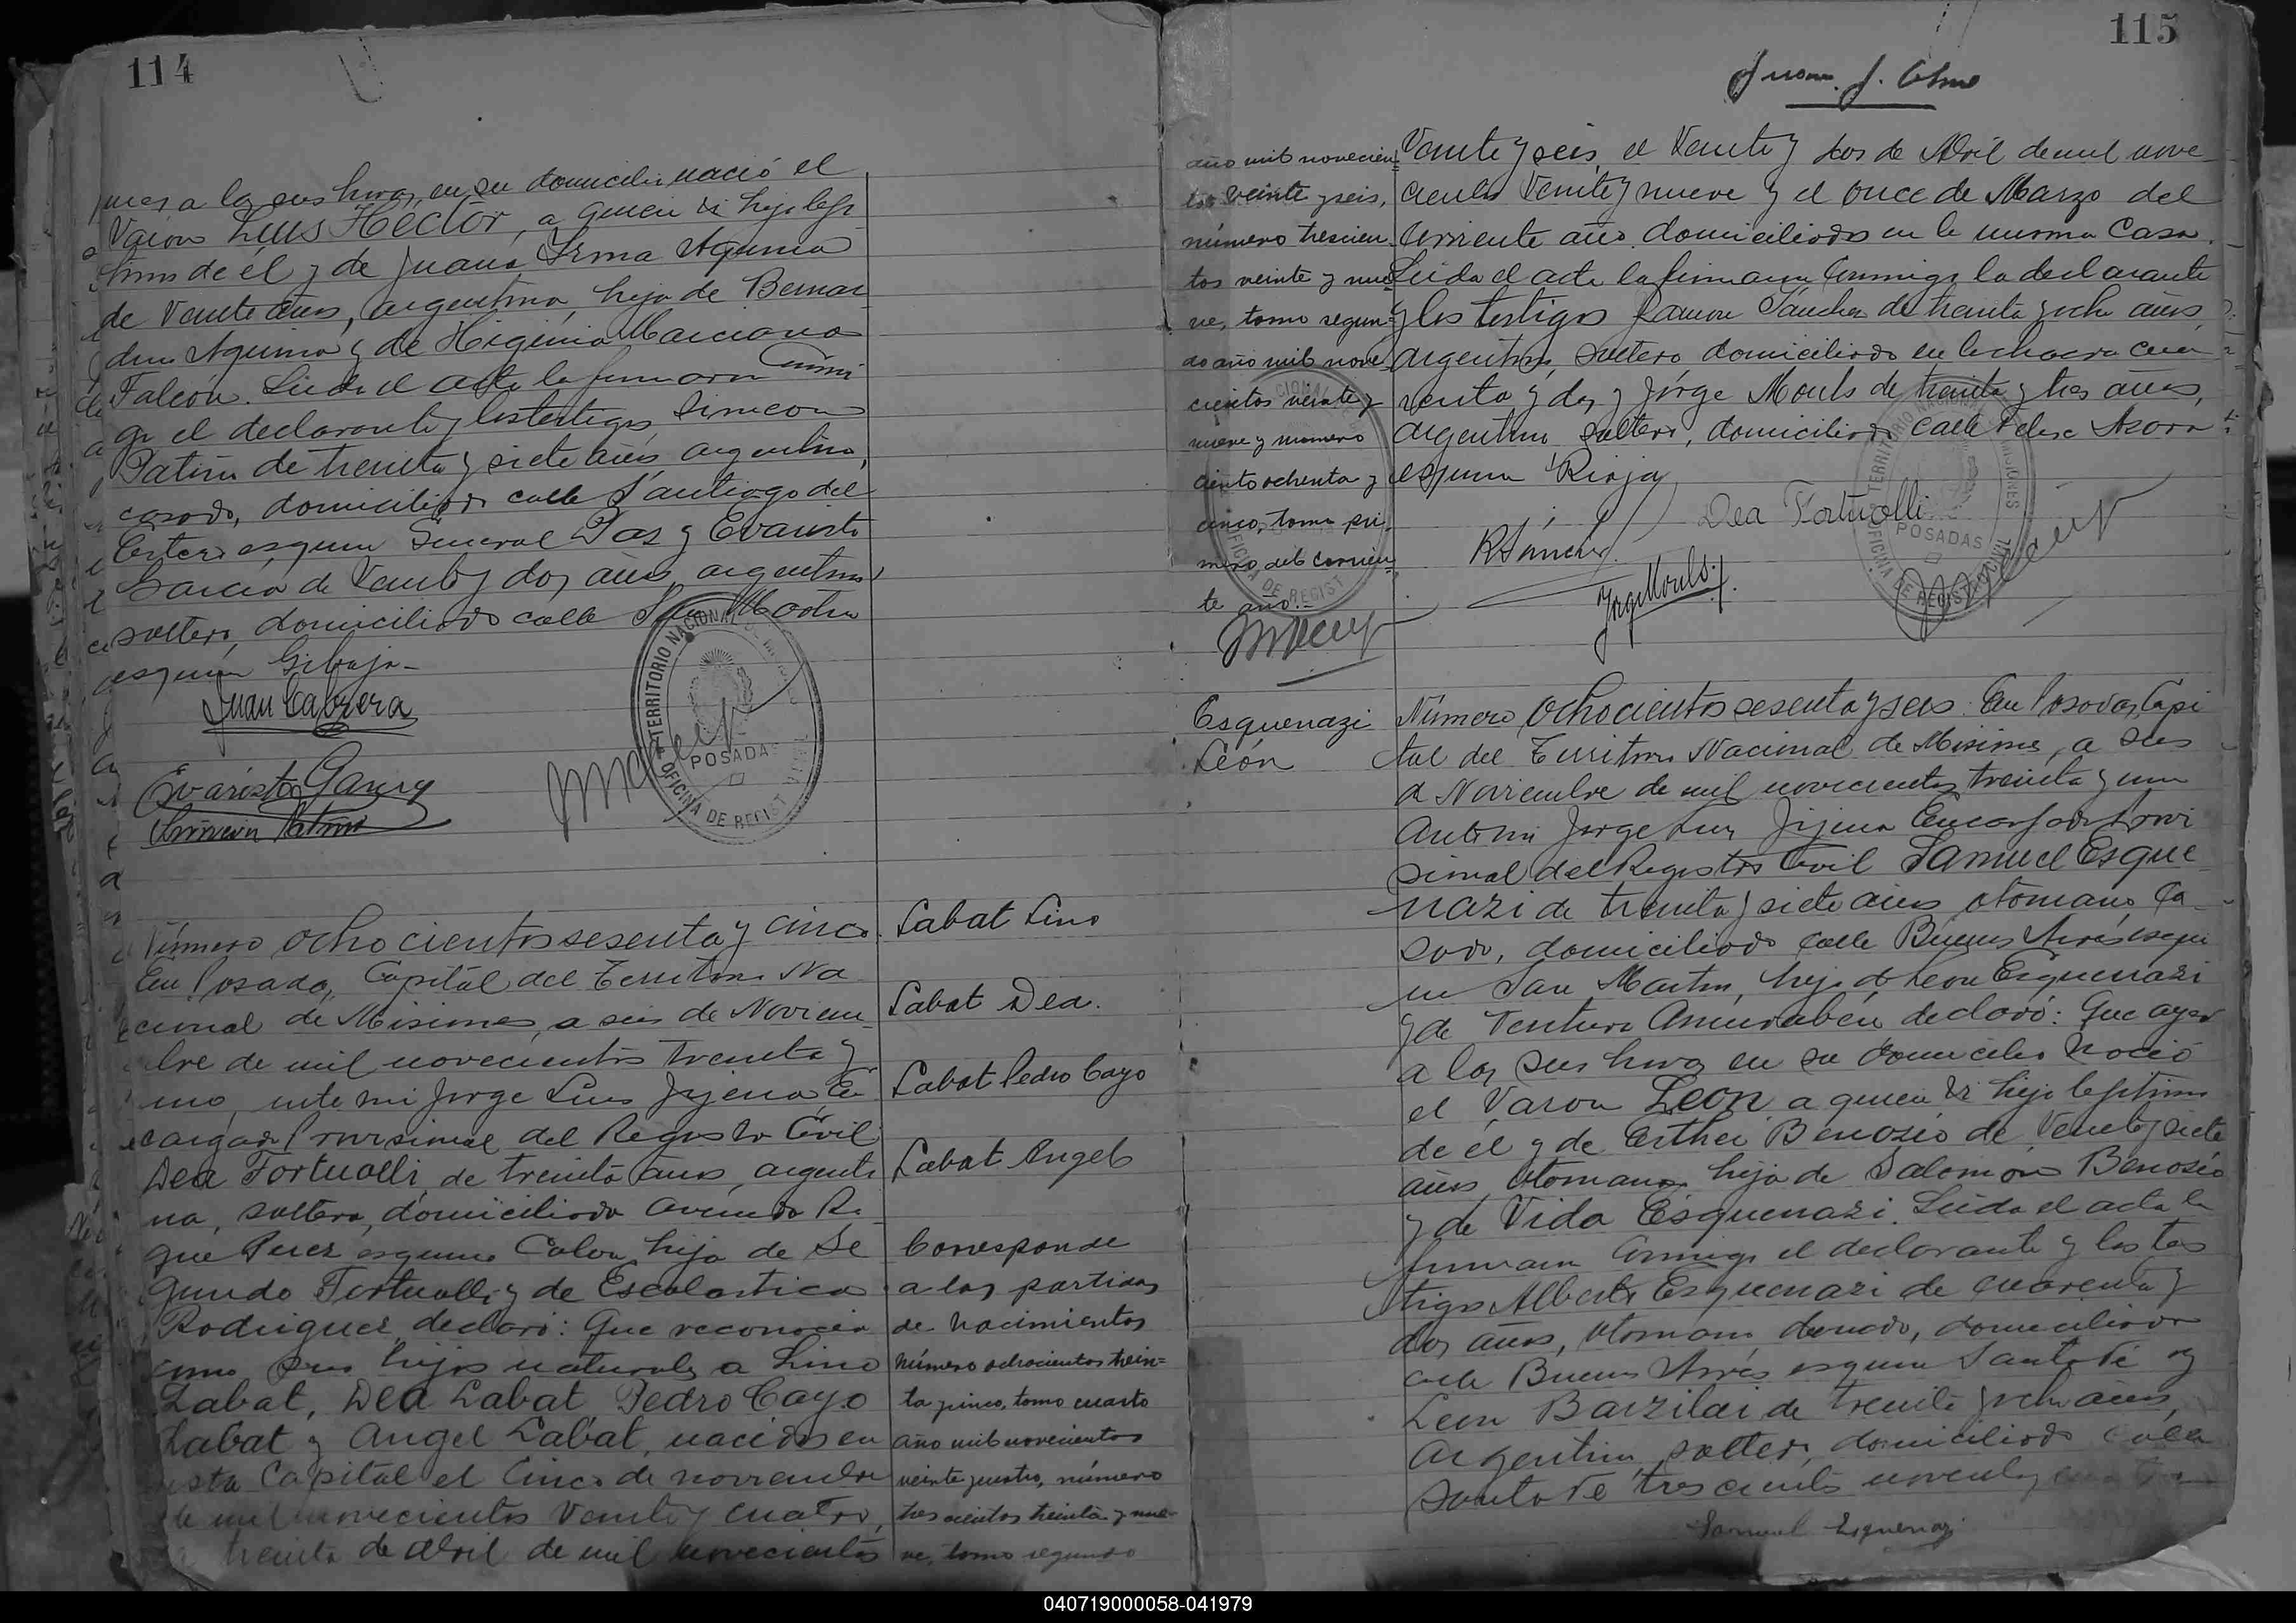 114
a las seis horas, en su domicilio nació el
Varón Luis Hector, a quien di hijo legi
timo de él y de Juana Irma Aquino
de Veinte años, argentina, hija de Bernar
dino Aquino y de Higinia Marciana
Falcón. Leida el acta la firmaron Conmi
go el declarante y los testigos Simeon
Patiño de treinta y siete años, argentino,
casado, domiciliado calle Santiago del
Estero esquina General Paz y Evaristo
Garcia de Veinte y dos años, argentino,
soltero, domiciliado calle San Martin
esquina Gibaja-
Juan Cabrera
Evaristo Garcia
Simeon Patiño
TERRITORIO NACIONAL DE MISIONES
POSADAS
OFICINA DE REGIST CIVIL
Número ochocientos sesenta y cinco.
En Posadas, Capital del Territorio Na
cional de Misiones, a seis de Noviem
bre de mil novecientos treinta y
uno, ante mi Jorge Luis Jijena, En
cargado Provisional del Registro Civil
Dea Fortuolli, de treinta años, argenti
na, soltera, domiciliada Avenida Ro
que Perez esquina Colon, hija de Se
gundo Fortuolli y de Escolastica
Rodriguez, declaró: Que reconocia
como sus hijos naturales a Lino
Labat, Dea Labat Pedro Cayo
Labat y Angel Labat, nacidos en
esta Capital el Cinco de noviembre
de mil novecientos Veinte y cuatro,
treinta de abril de mil novecientos
Labat Lino
Labat Dea.
Labat Pedro Cayo
Labat Angel
Corresponde
a las partidas
de nacimientos
número ochocientos trein=
ta y cinco, tomo cuarto
año mil novecientos
veinte y cuatro, número
trescientos treinta y nue-
ve, tomo segundo
115
Juan J.
año mil novecien=
tos veinte y seis,
número trescien
tos veinte y nue=
ve, tomo segun=
do año mil nove
cientos veinte y
nueve y número
ciento ochenta y
cinco, tomo pri,
mero del corrien=
te año.-
Veinte y seis, el Veinte y dos de Abril de mil nove
cientos Veinte y nueve y el once de Marzo del
corriente año, domiciliados en la misma Casa.
Leida el acta la firmaron Conmigo la declarante
y los testigos Ramon Sanchez de treinta y ocho años,
argentino, soltero domiciliado en la chacra cua
renta y dos y Jorge Mouls de treinta y tres años,
argentino soltero, domiciliado calle Felix Azara
esquina Rioja
Dea Fortuolli
RSanchez
Jorge Mouls
TERRITORIO NACIONAL DE MISIONES
POSADAS
OFICINA DE REGIST CIVIL
Esquenazi
León
Número ochocientos sesenta y seis. En Posadas, Capi
tal del Territorio Nacional de Misiones, a seis
de Noviembre de mil novecientos treinta y uno
Ante mi Jorge Luis Jijena Encargado Provi
sional del Registro Civil Samuel Esque
nazi de treinta y siete años otomano, Ca-
sado, domiciliado calle Buenos Aires esqui
na San Martin, hijo de Leon Esquenazi
y de Ventura Amuraben declaró: Que ayer
a las seis horas en su domicilio nació
el Varon Leon, a quien di hijo legitimo
de él y de Esther Benosio de Veinte y siete
años, otomana hija de Salomón Benosio
y de Vida Esquenazi. Leida el acta la
firmaron Conmigo el declarante y los tes
tigos Alberto Esquenazi de cuarenta y
dos años, otomano, casado, domiciliado
calle Buenos Aires esquina Santa Fé y
Leon Barzilai de treinta y ocho años,
argentino, soltero, domiciliado calle
Santa Fé trescientos noventa y
Samuel Esquenazi
040719000058-041979